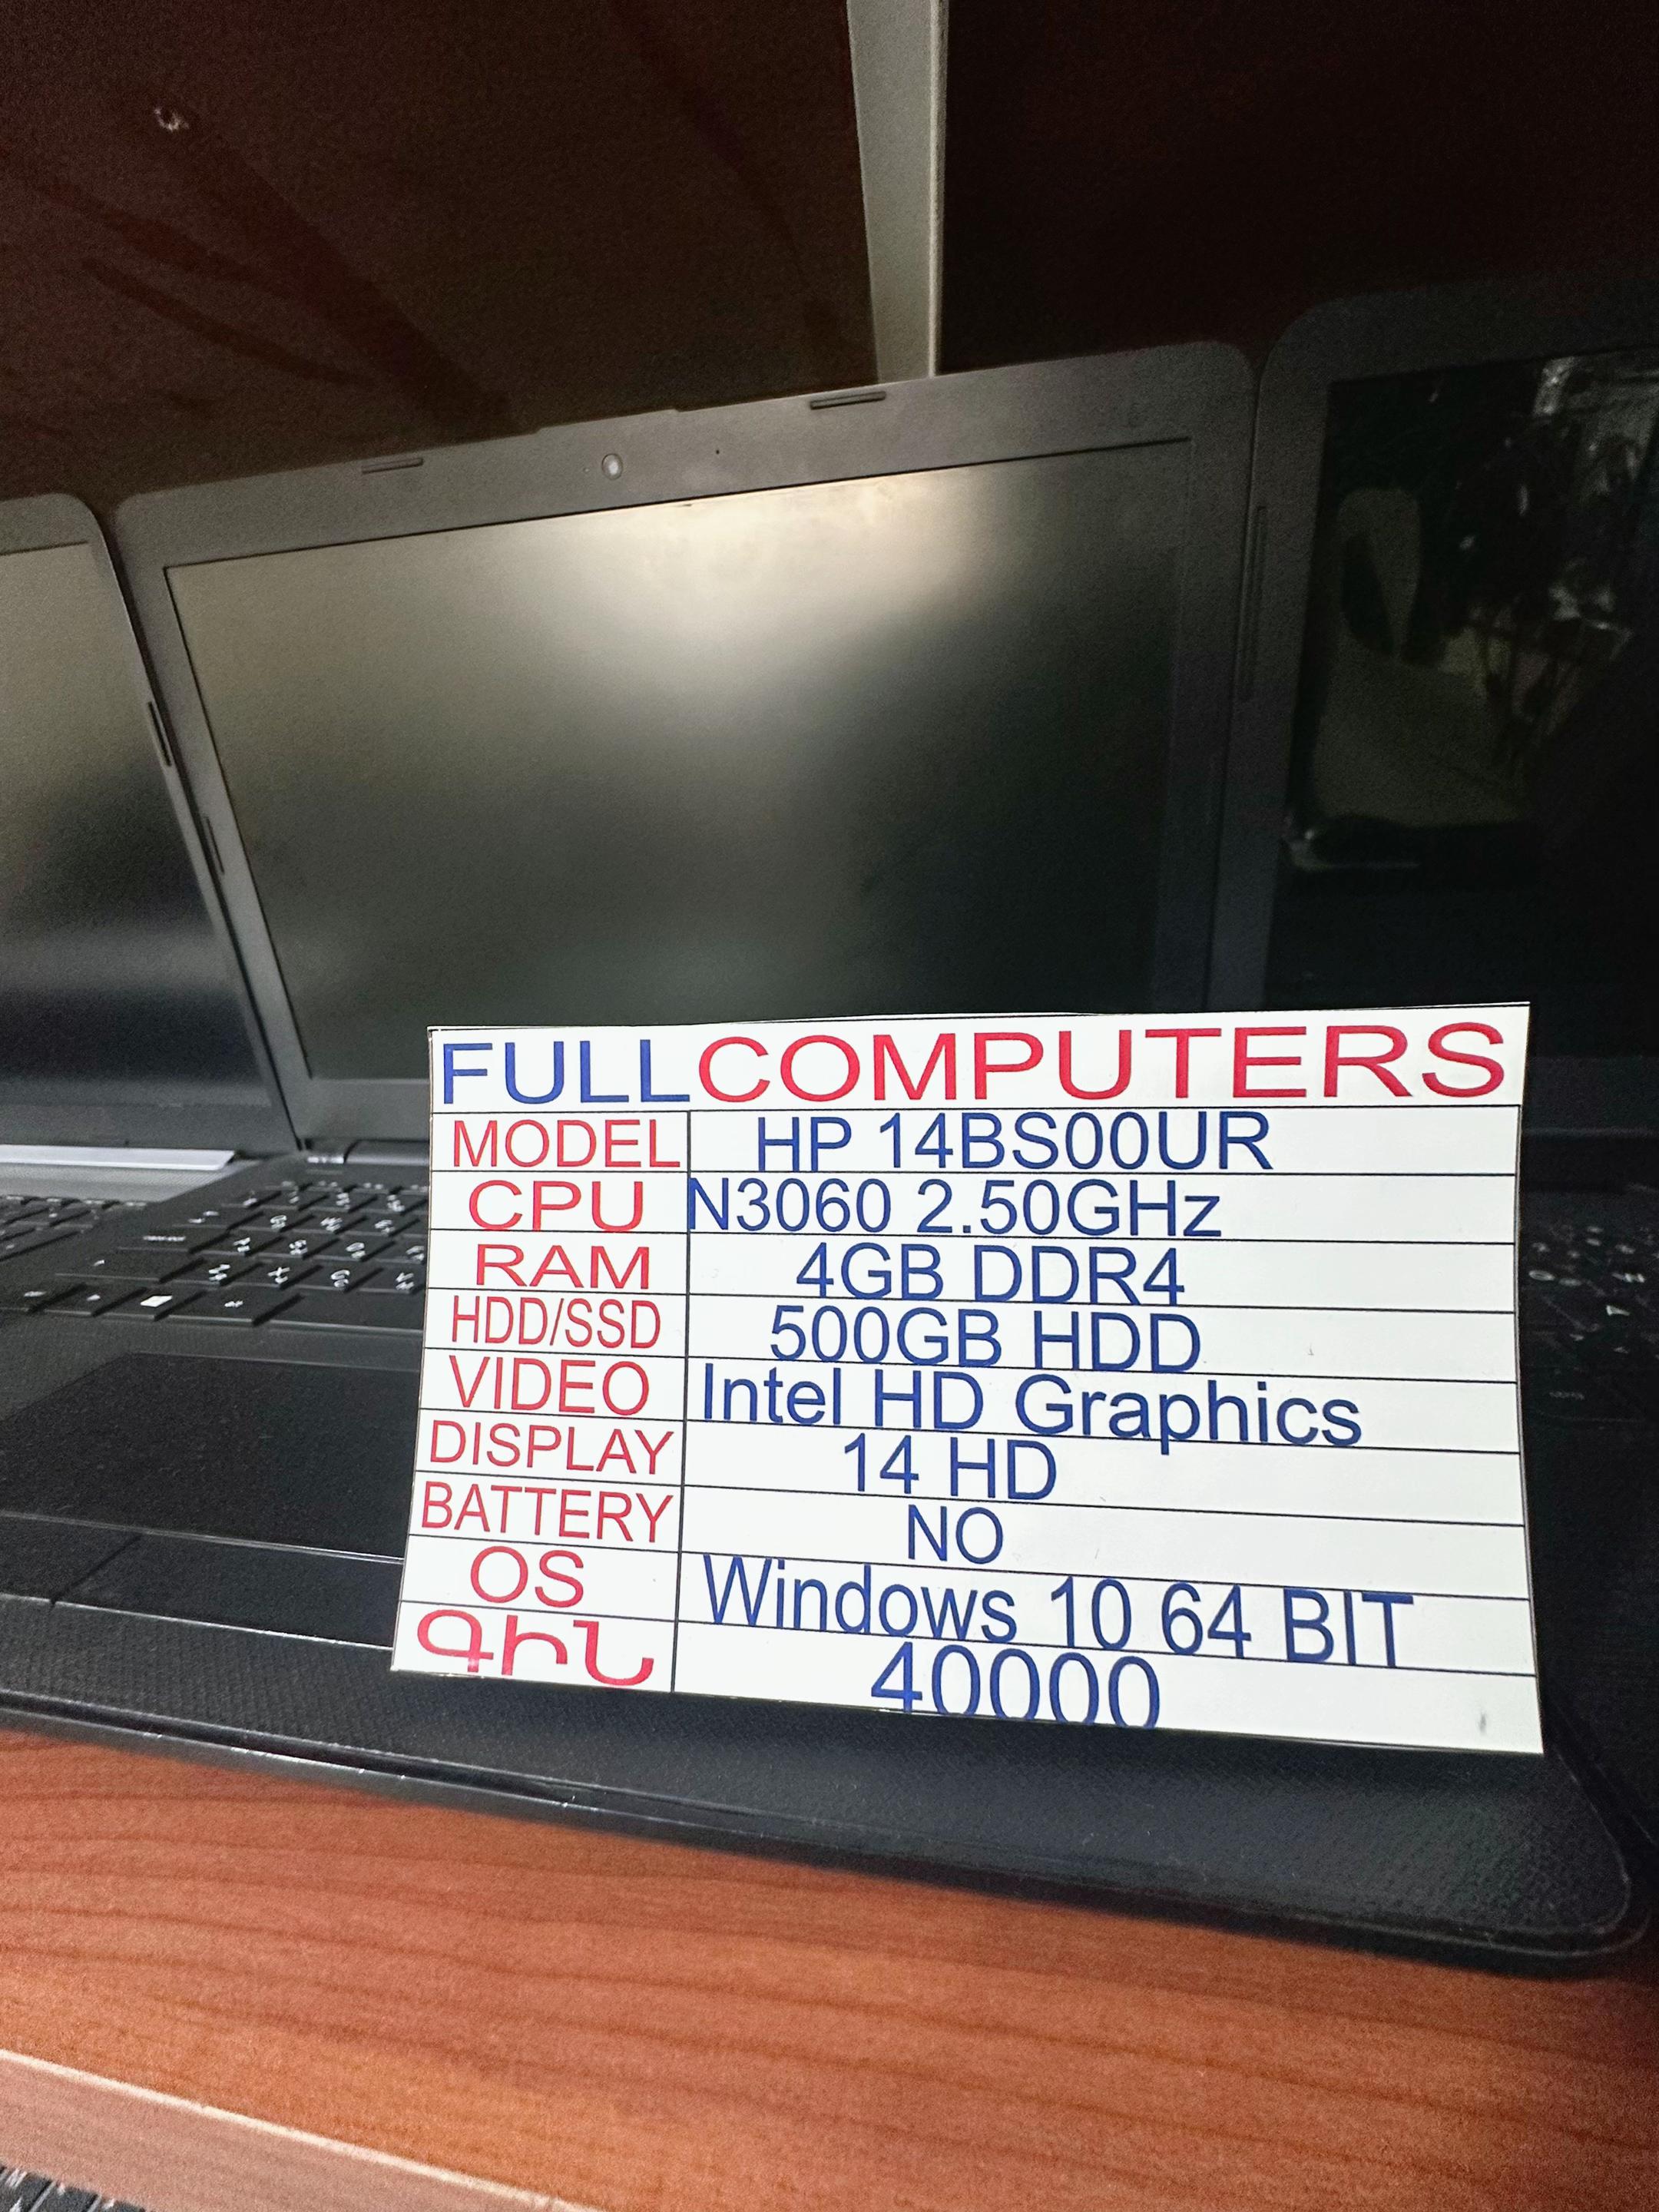 FULLCOMPUTERS
MODEL HP 14BS00UR
CPU N3060 2.50GHz
RAM 4GB DDR4
HDD/SSD 500GB HDD
VIDEO Intel HD Graphics
DISPLAY 14 HD
BATTERY NO
OS Windows 10 64 BIT
ԳԻՆ 40000